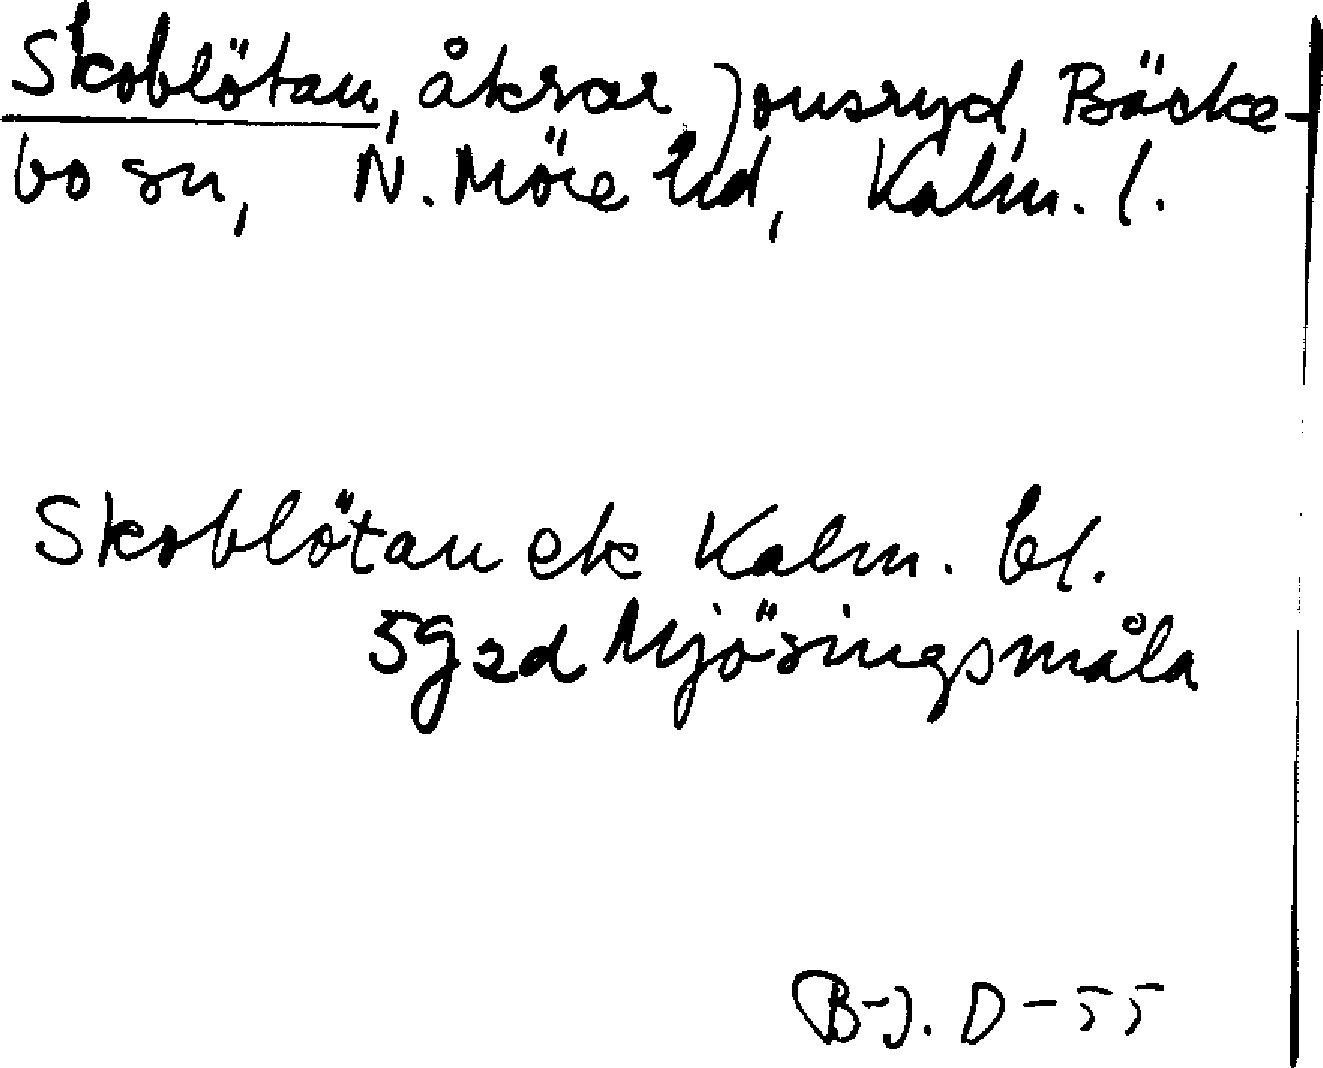 Skoblötan, åkrar Jonsryd, Bäcke-
bo sn, N. Möre hd, Kalm. l.
Skoblötan ek Kalm. bl.
5g2d Mjösingsmåla
B-J. D-55